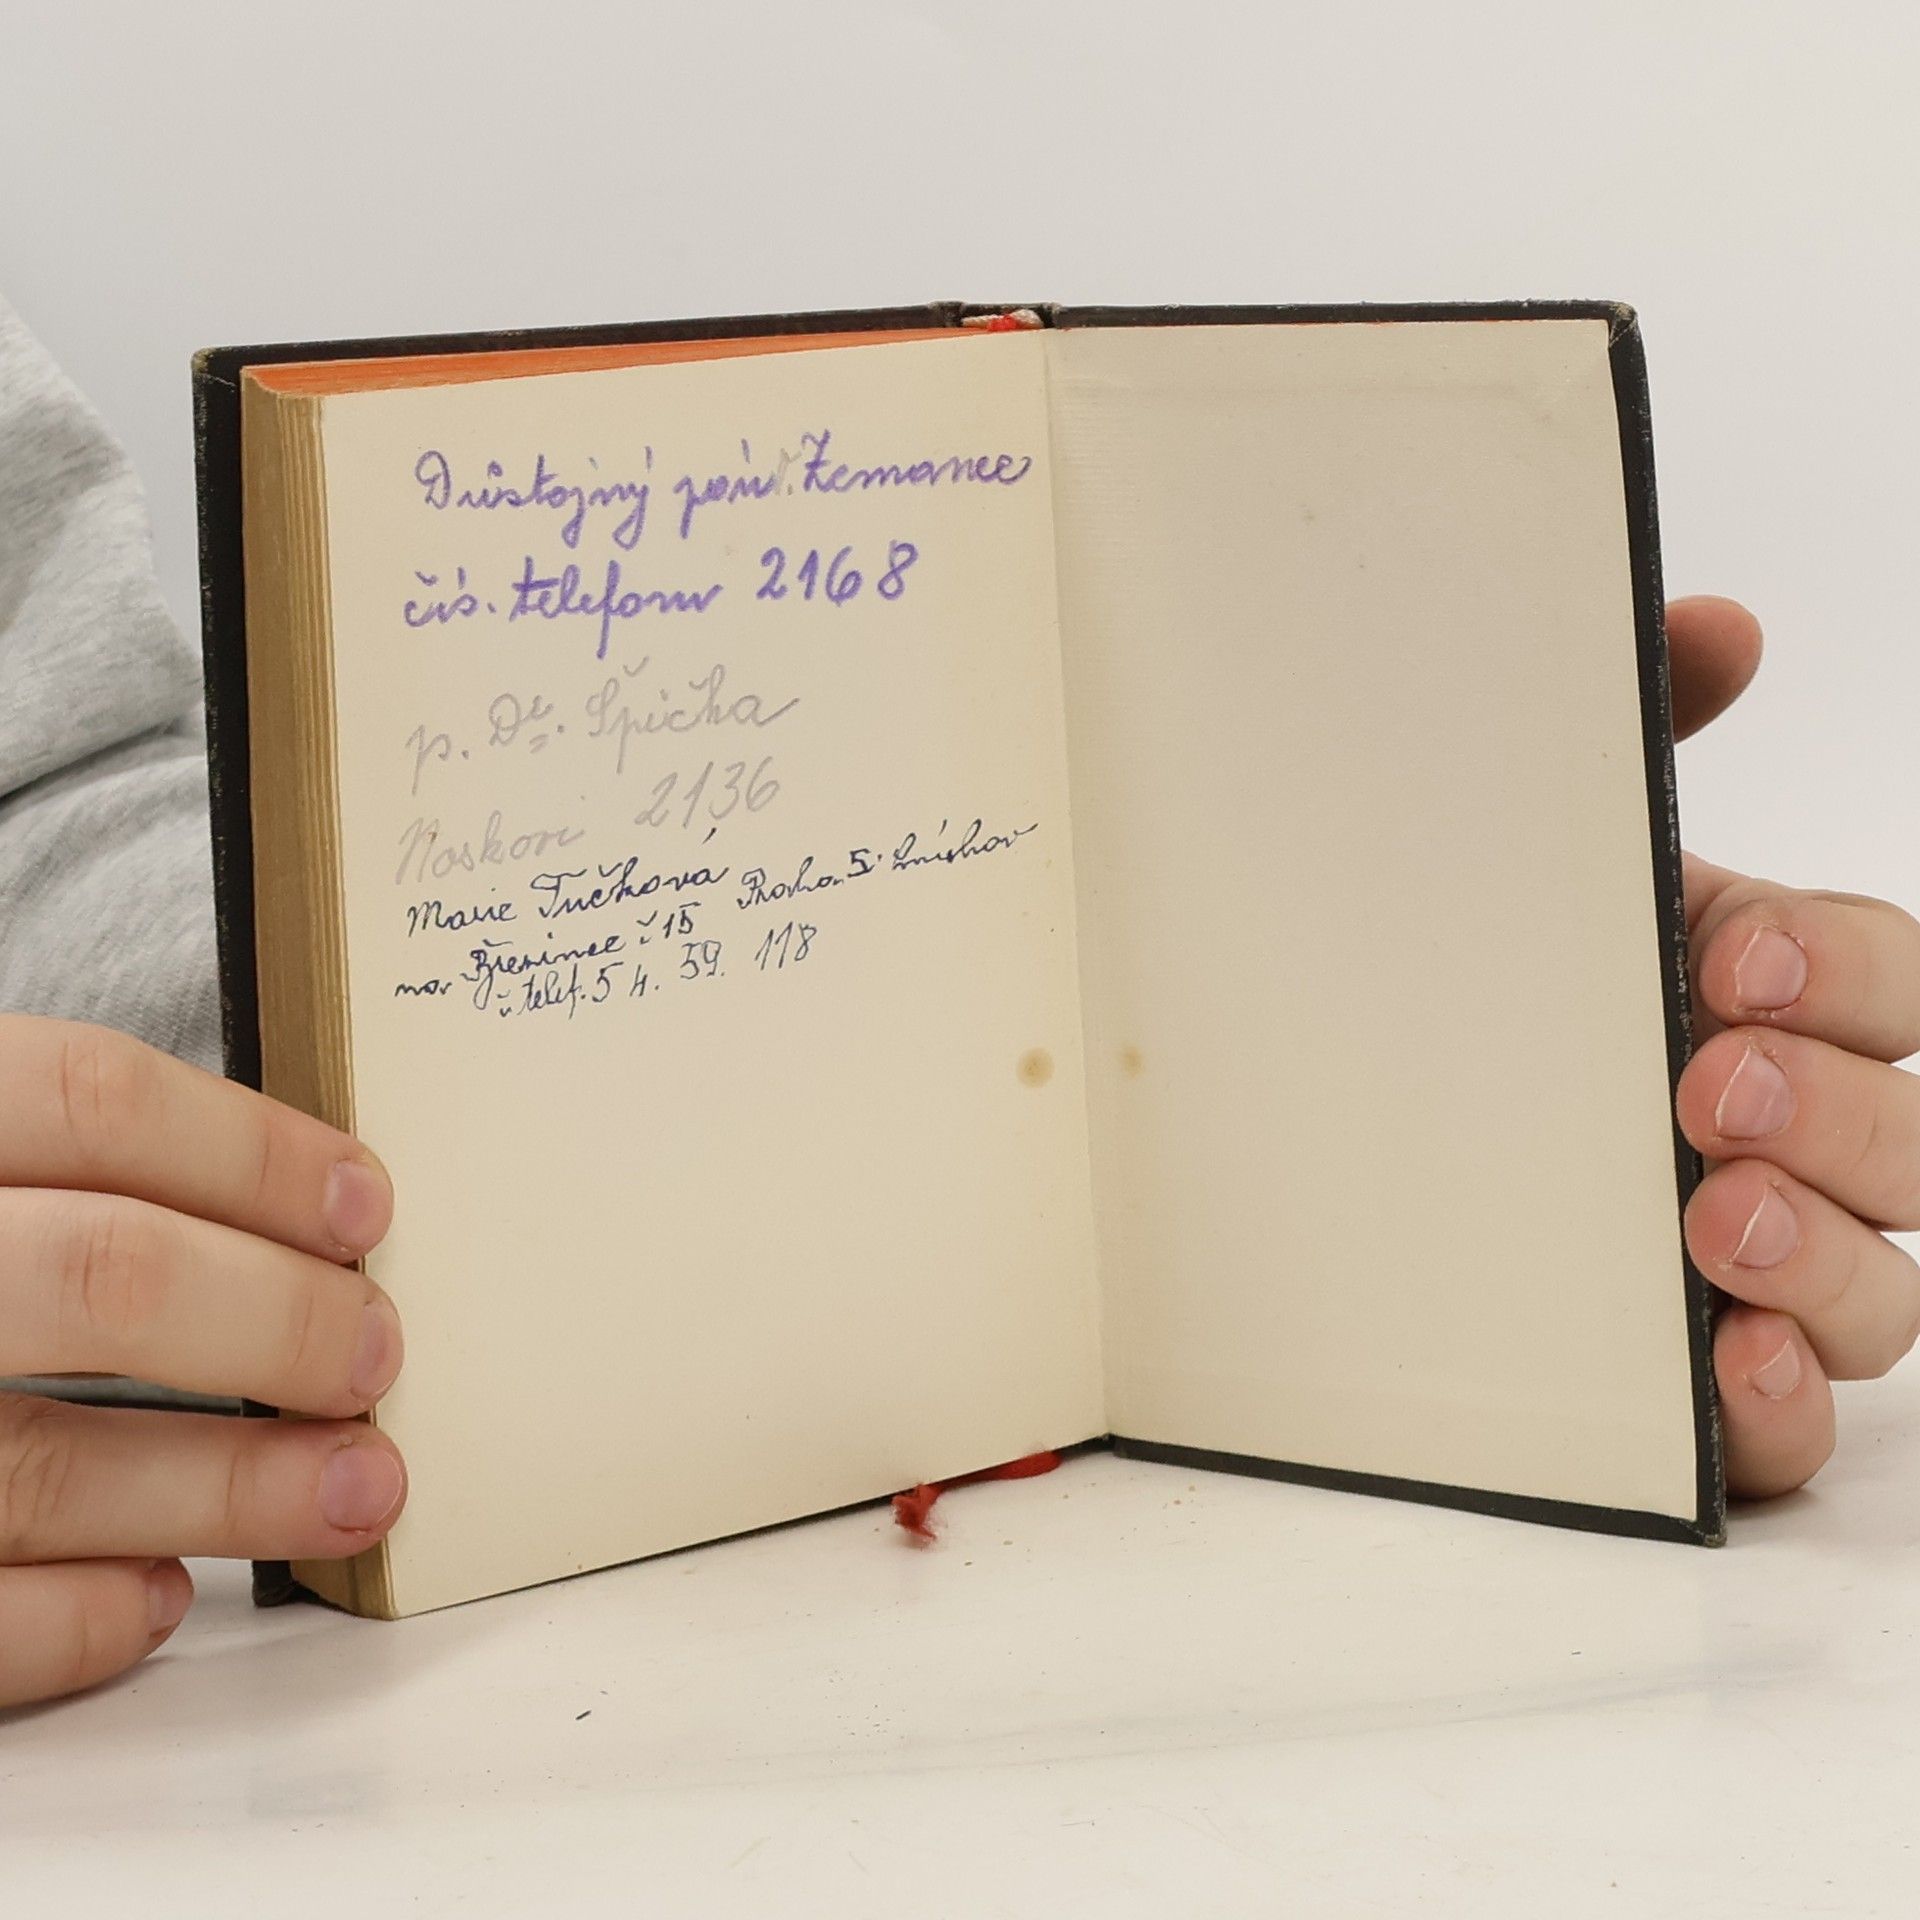 Důstojný pán Zemanec
čís. telefonu 2168
p. Dr. Špička
Noskovi 2136
Marie Tučková Praha 5. Smíchov
na Březince č 15
č telef. 54. 59. 118